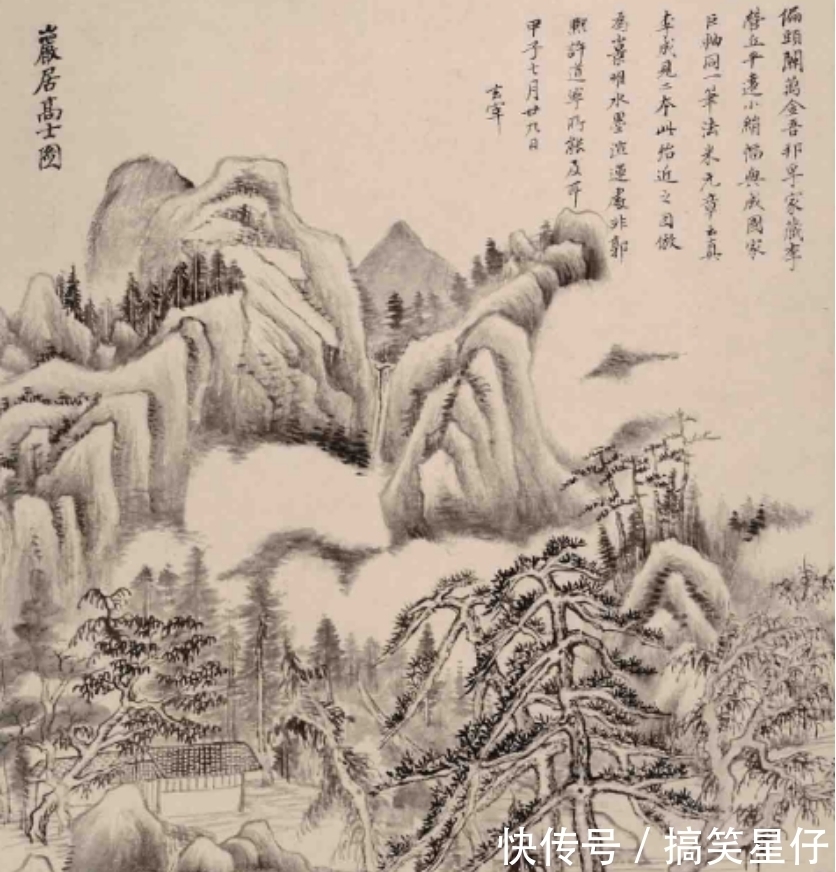 偏頭關萬金吾邦孚家藏李
營丘平遠小絹幅與戚國家
巨軸同一筆法米元章云真
李成見二本此殆近之因倣
為水墨處非郭
熙許道寧所能及耳
甲子七月廿九日
玄宰
巖居高士圖
快传号 / 搞笑星仔